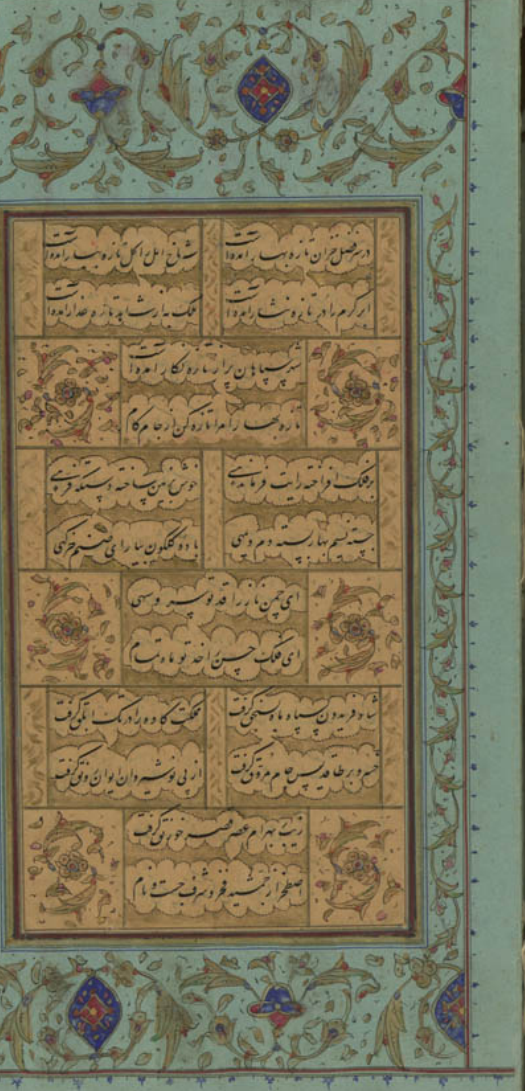 در سر فصل خزان تازه بهار آمده است    تازه ببار آمده است
ابر کرم را در تازه نثار آمده است    تازه عذار آمده است
شهر سپاهان پر از تازه نگار آمده است
تازه بهارا مرا تازه کن از جام کام
بر فلک افراخته رایت فرماندهی    خوش بزمین ساخته دستگه فرهی
جسته نسیم بهار رسته دم    باده گلگون بیار ای صنم خرگهی
ای چمن ناز را قد تو سرو سهی
ای فلک حسن را خد تو ماه تمام
شاه فریدون سپاه ماه سنجق گرفت    مملکت کاوه را در تک ابلق گرفت
خسرو بر طاقدیس جام مروق گرفت    از پی نوشیروان ایوان رونق گرفت
بهرام عصر قصر خورنق گرفت
صطخر از جمشید فر و شرف جست و نام